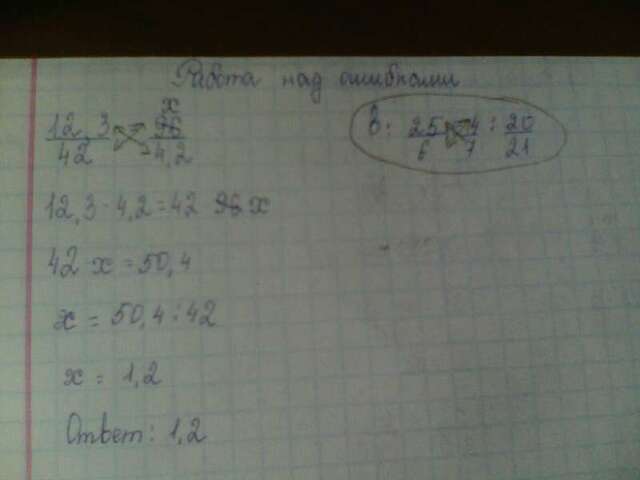 Работа над ошибками
12,3/42 = x/4,2
в: 25/6 4/7 : 20/21
12,3 · 4,2 = 42 x
42 x = 50,4
x = 50,4 : 42
x = 1,2
Ответ: 1,2